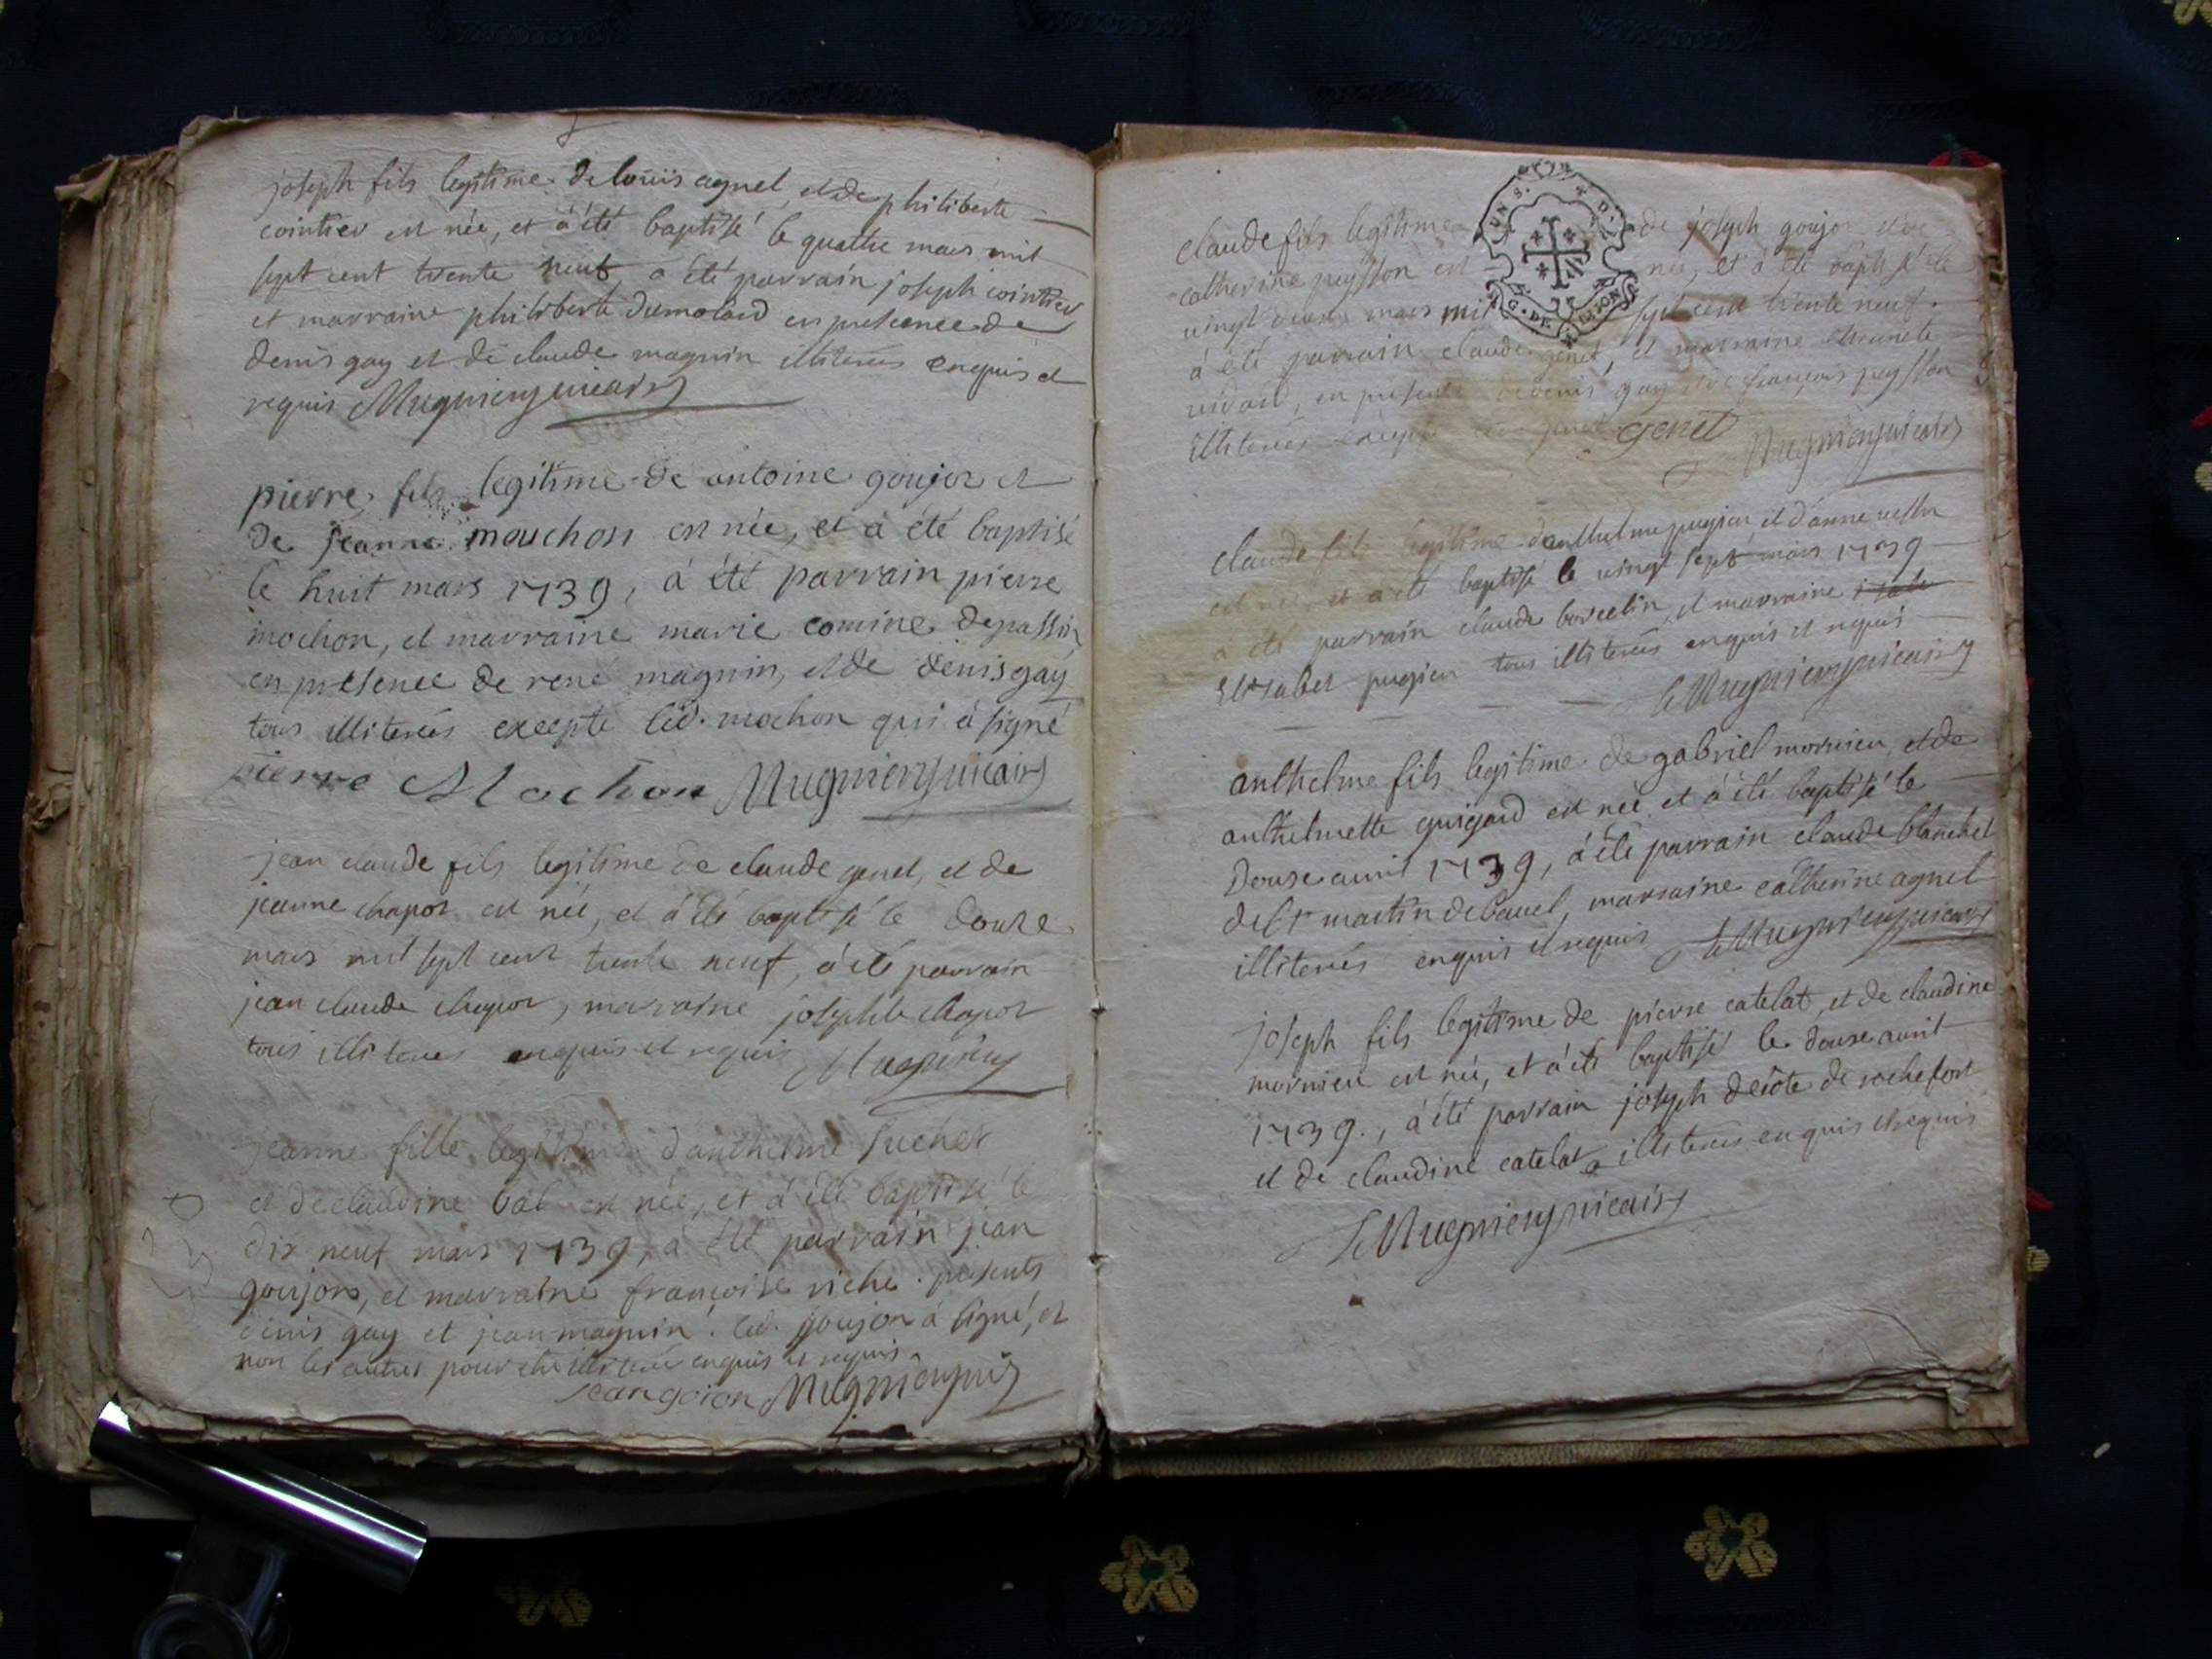 joseph fils legitime de loüis agnel, et de philiberte
cointier est née, et à été baptisé le quattre mars mil
sept cent trente neuf a été parrain joseph cointier
et marraine philiberte dumolard en presence de
denis gay et de claude magnin illiterés enquis et
requis Mugnier vicair
pierre fils legitime de antoine goujon et
de jeanne mouchon est née, et à été baptisé
le huit mars 1739, à été parrain pierre
mochon, et marraine marie comine de passin
en presence de rené magnin, et de denis gay
tous illiterés excepté led. mochon qui à signé
pierre Mochon Mugnier vicair
jean claude fils legitime de claude genet, et de
jeanne chapot est née, et à été baptisé le douze
mars mil sept cent trente neuf, à été parrain
jean claude chapot, marraine josephte chapot
tous illiterés enquis et requis Mugnier
jeanne fille legitime d'anthelme suchet
et de claudine bal est née, et à été baptisé le
dix neuf mars 1739, à été parrain jean
goujon, et marraine françoise riche. presents
denis gay et jean magnin. led. goujon à signé, et
non les autres pour être illiterés enquis et requis
jean goion Mugnier
claude fils legitime de joseph goujon et de
catherine peysson est née, et à été baptisé le
vingt mars mil sept cent trente neuf.
à été parrain claude genet, et marraine
vidard, en presence de denis gay et de françois peysson
illiterés excepté genet Mugnier vicair
G. DE LION
claude fils legitime d'anthelme pugieu, et d'anne
est née, et a été baptisé le vingt sept mars 1739
a été parrain claude borcelin, et marraine
pugieu tous illiterés enquis et requis
Mugnier vicair
anthelme fils legitime de gabriel mornieu, et de
anthelmette guigard est née et à été baptisé le
douse avril 1739, à été parrain claude blanchet
de st martin de bavel, marraine catherine agnel
illiterés enquis et requis Mugnier vicair
joseph fils legitime de pierre catelat, et de claudine
mornieu est née, et à été baptisé le douse avril
1739., à été parrain joseph decote de rochefort
et de claudine catelat illiterés enquis et requis
Mugnier vicair